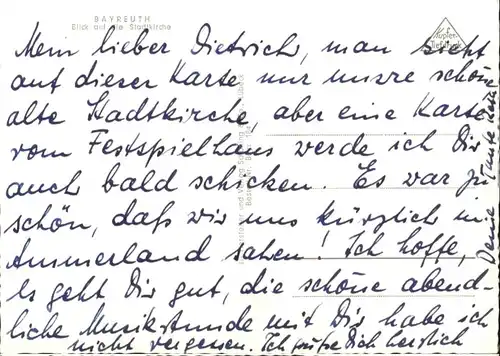 BAYREUTH
Blick auf die Stadtkirche
Mein lieber Dietrich, man sieht
auf dieser Karte nur unsre schöne
alte Stadtkirche, aber eine Karte
vom Festspielhaus werde ich Dir
auch bald schicken. Es war zu
schön, daß wir uns kürzlich im
Ammerland sahen! Ich hoffe,
es geht Dir gut, die schöne abend-
liche Musikstunde mit Dir habe ich
nicht vergessen. Ich grüße Dich herzlich
Deine Tante